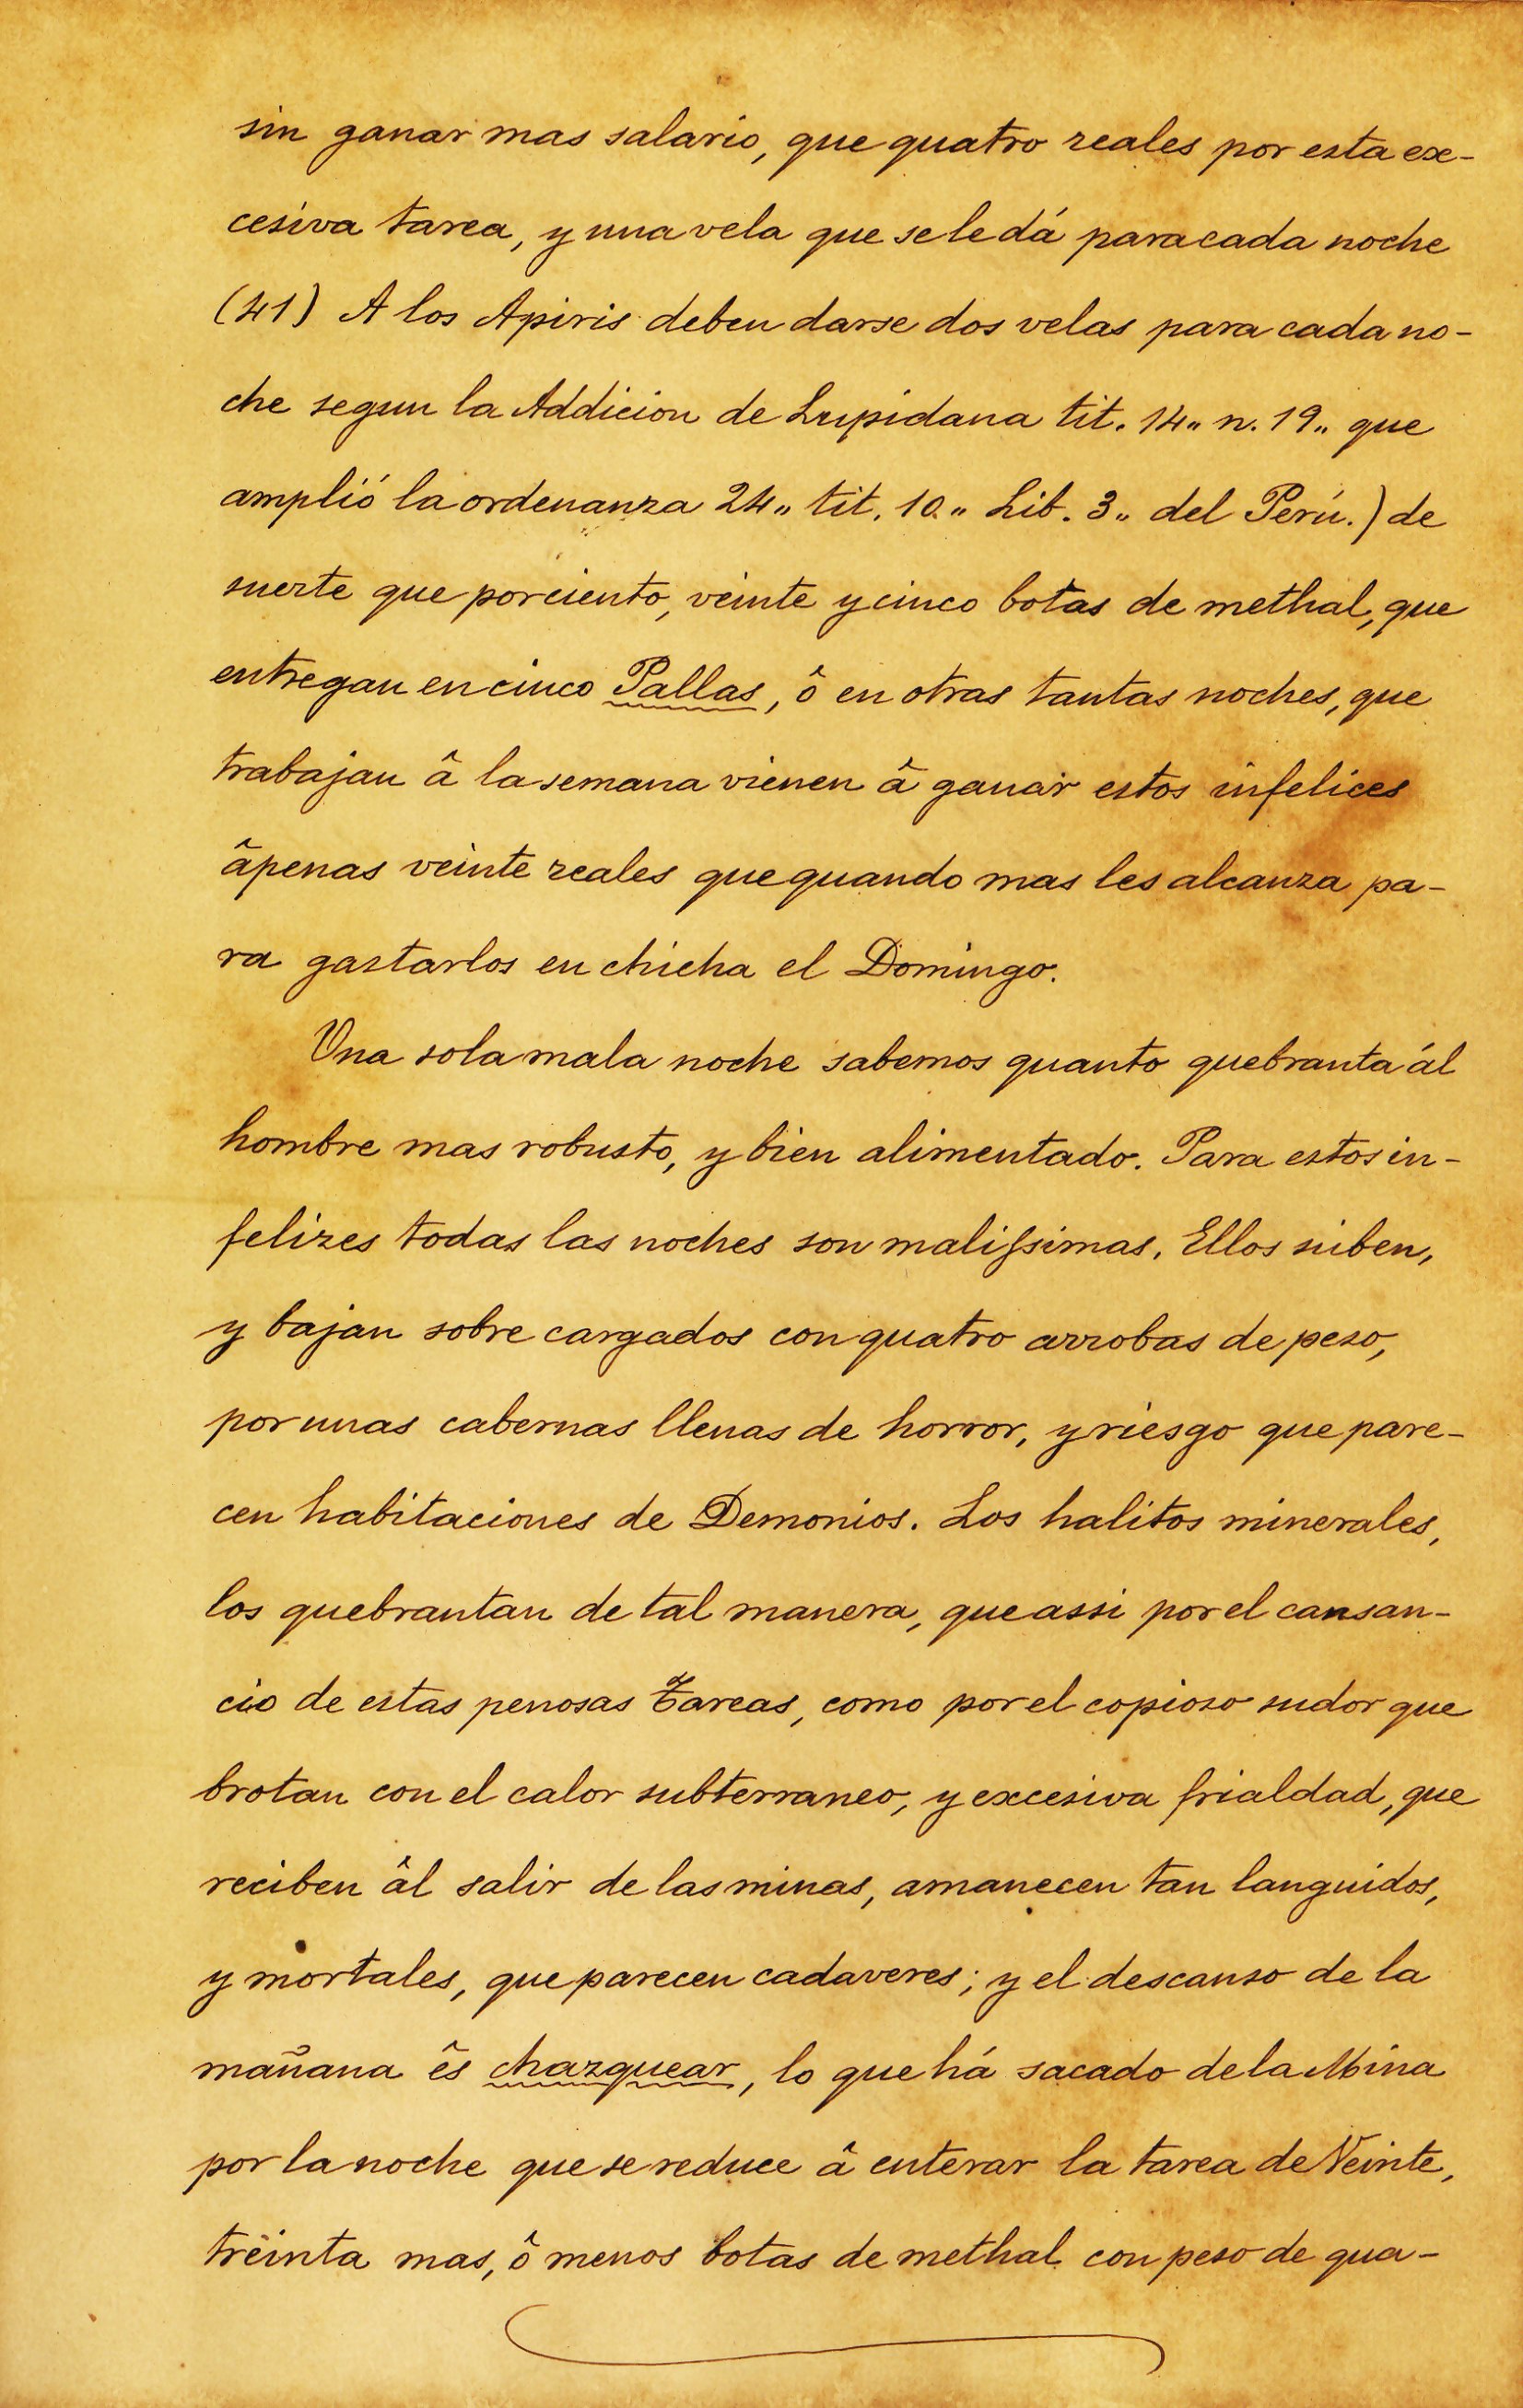 sin ganar mas salario, que quatro reales por esta ex-
cesiva tarea, y una vela que se le dá para cada noche
(41) A los Apiris deben darse dos velas para cada no-
che segun la Addicion de Lupidana tit. 14,, n. 19,, que
amplió la ordenanza 24,, tit. 10,, Lib. 3,, del Perú.) de
suerte que por ciento, veinte y cinco botas de methal, que
entregan en cinco Pallas, ô en otras tantas noches, que
trabajan â la semana vienen â ganar estos infelices
âpenas veinte reales que quando mas les alcanza pa-
ra gastarlos en chicha el Domingo.
Una sola mala noche sabemos quanto quebranta ál
hombre mas robusto, y bien alimentado. Para estos in-
felizes todas las noches son maliſsimas. Ellos suben,
y bajan sobre cargados con quatro arrobas de peso,
por unas cabernas llenas de horror, y riesgo que pare-
cen habitaciones de Demonios. Los halitos minerales,
los quebrantan de tal manera, que assi por el cansan-
cio de estas penosas Tareas, como por el copioso sudor que
brotan con el calor subterraneo, y excesiva frialdad, que
reciben âl salir de las minas, amanecen tan languidos,
y mortales, que parecen cadaveres; y el descanso de la
mañana ês chazquear, lo que há sacado de la Mina
por la noche que se reduce â enterar la tarea de Veinte,
treinta mas, ô menos botas de methal con peso de qua-